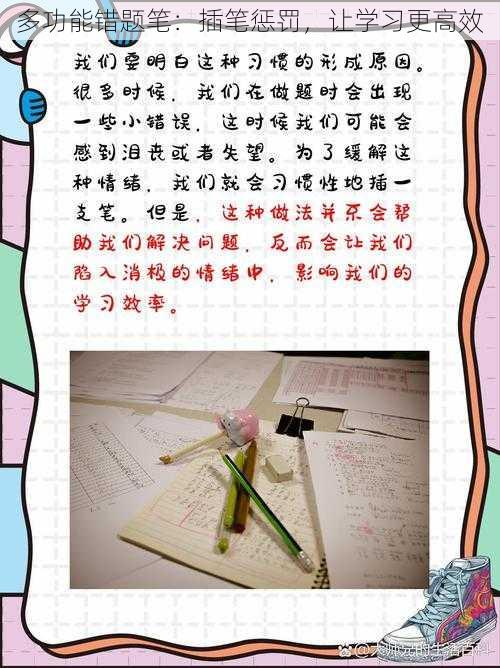 多功能错题笔：插笔惩罚，让学习更高效
我们要明白这种习惯的形成原因。
很多时候，我们在做题时会出现
一些小错误，这时候我们可能会
感到沮丧或者失望。为了缓解这
种情绪，我们就会习惯性地插一
支笔。但是，这种做法并不会帮
助我们解决问题，反而会让我们
陷入消极的情绪中，影响我们的
学习效率。
大师兄的生活百科